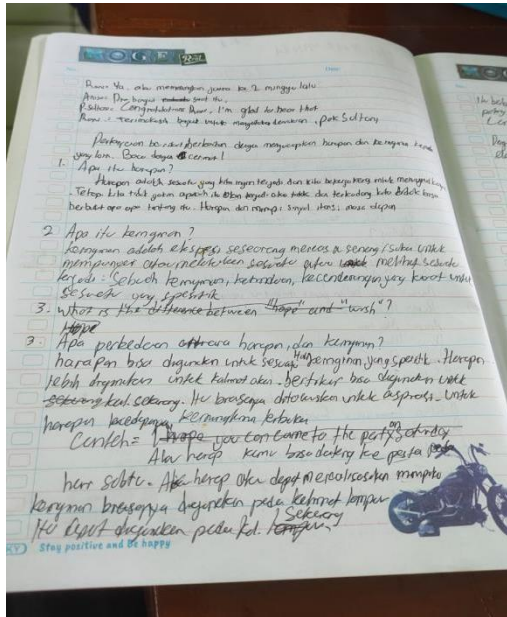 MOGE
No. Date:
Rumi: Ya, aku memenangkan juara ke 2 minggu lalu
saat itu.
P. Sultony: Congratulations Rumi, I'm glad to hear that
Rumi: Terimakasih banyak untuk Pak Sultony
Pertanyaan berikut berkaitan dengan mengucapkan harapan dan keinginan kepada
yang lain. Baca dengan cermat!
1. Apa itu harapan?
Harapan adalah sesuatu yang kita ingin terjadi dan kita bekerja keras untuk
Tetapi kita tidak yakin apakah itu akan terjadi atau tidak dan terkadang kita tidak bisa
berbuat apa apa tentang itu. Harapan dan mimpi: masa depan
2 Apa itu keinginan?
Keinginan adalah ekspresi seseorang merasa senang/suka untuk
mempunyai atau melakukan sesuatu atau melihat sesuatu
terjadi: Sebuah kecenderungan yang kuat untuk
sesuatu yang spesifik
3. What is the difference between "hope" and "wish"?
Hope
3. Apa perbedaan antara harapan, dan keinginan?
harapan bisa digunakan untuk sesuatu keinginan yang spesifik. Harapan
lebih digunakan untuk kalimat akan. bisa digunakan untuk
kal. sekarang. Itu biasanya untuk untuk
harapan kedepannya
Contoh = I hope you can come to the party on Saturday
Aku harap kamu bisa datang ke pesta pada
hari sabtu. Aku harap aku dapat
keinginan biasanya digunakan pada kalimat lampau
Itu dapat digunakan pada kal. Sekarang
KY Stay positive and Be happy